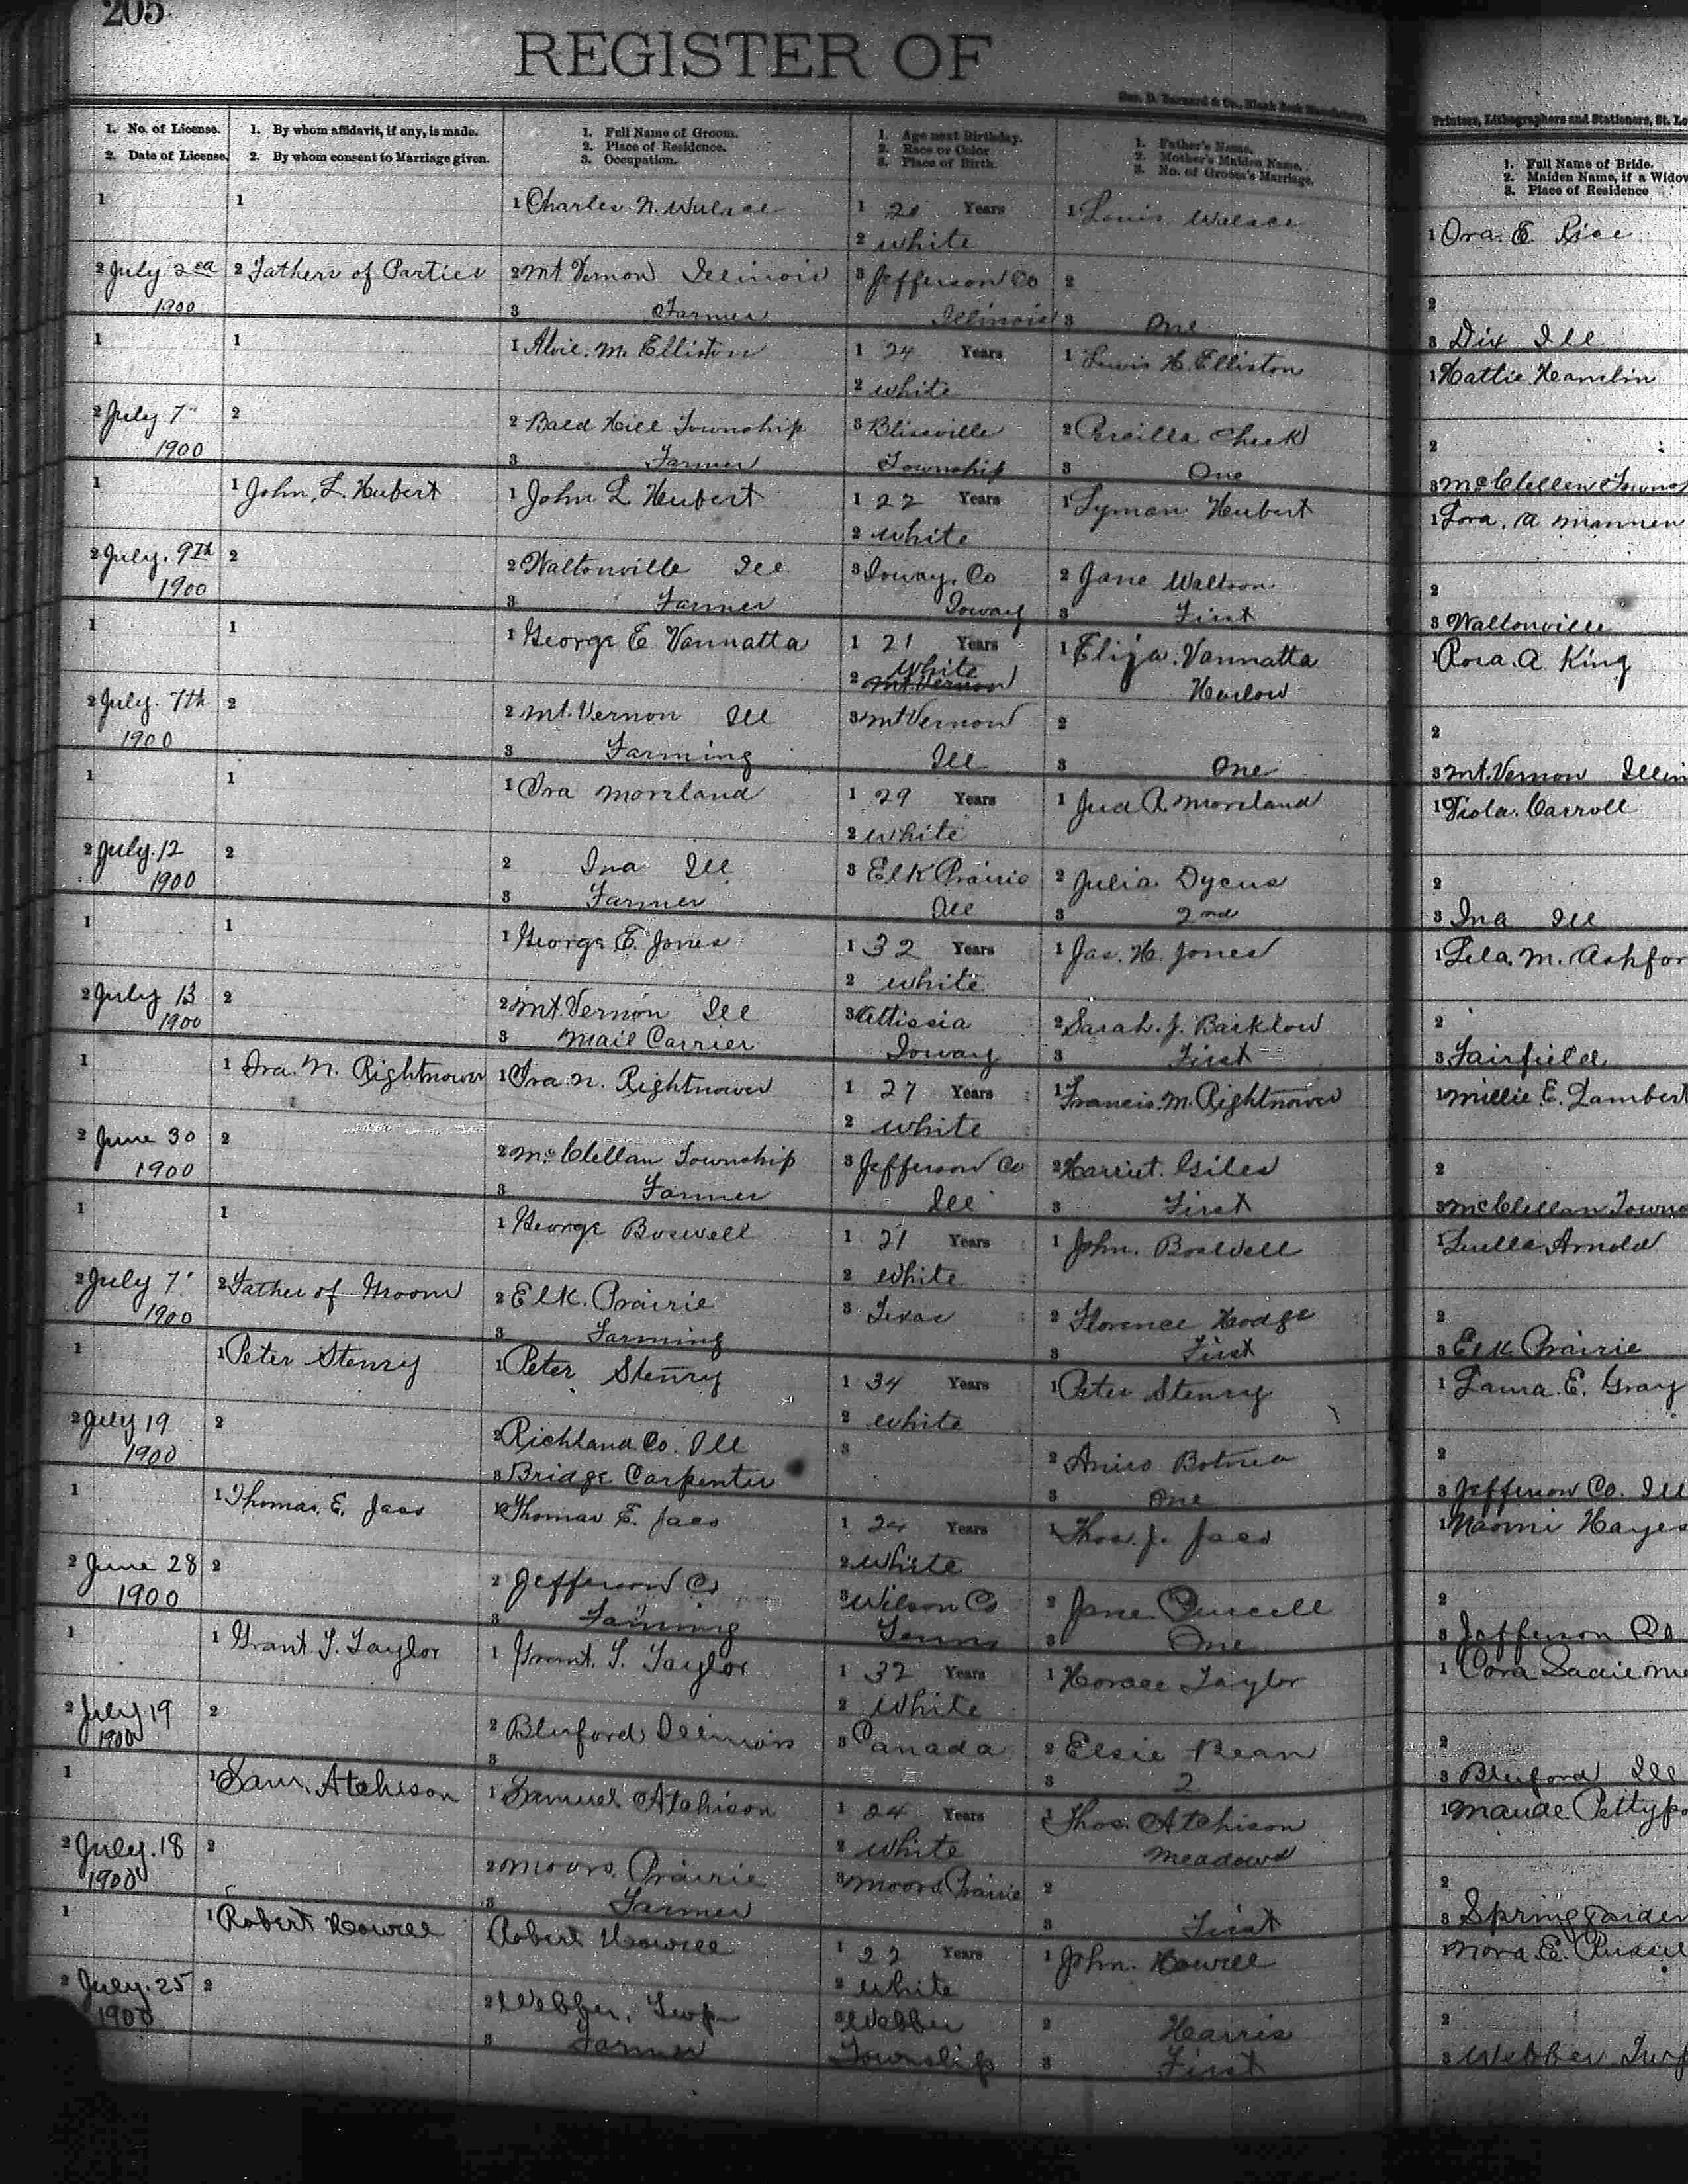 205
REGISTER OF
Geo. D. Barnard & Co., Blank Book Manufacturers,
Printers, Lithographers and Stationers, St. Lo
1. No. of License.
2. Date of License.
1. By whom affidavit, if any, is made.
2. By whom consent to Marriage given.
1. Full Name of Groom.
2. Place of Residence.
3. Occupation.
1. Age next Birthday.
2. Race or Color
3. Place of Birth.
1. Father's Name.
2. Mother's Maiden Name.
3. No. of Groom's Marriage.
1. Full Name of Bride.
2. Maiden Name, if a Widow
3. Place of Residence
1 1 1 Charles. N. Walace 1 20 Years 1 Louis Walace 1 Ora. E Rice
2 white
2 July 2nd 2 Fathers of Parties 2 Mt Vernon Illinois 3 Jefferson Co 2 2
1900 3 Farmer Illinois 3 One 3 Dix Ill
1 1 1 Alvie. M. Elliston 1 24 Years 1 Lewis H. Elliston 1 Hattie Hamlin
2 white
2 July 7" 2 2 Bald Hill Township 3 Blissville 2 Percilla Cheek 2
1900 3 Farmer Township 3 One 3 McClellen Towns
1 1 John, L. Hubert 1 John L Hubert 1 22 Years 1 Lyman Hubert 1 Lora. A Mannen
2 white
2 July. 9th 2 2 Waltonville Ill 3 Ioway. Co 2 Jane Waltson 2
1900 3 Farmer Ioway 3 First 3 Waltonville
1 1 1 George E Vannatta 1 21 Years 1 Elija. Vannatta 1 Rosa. A King
2 white Mt. Vernon Harlow
2 July. 7th 2 2 Mt. Vernon Ill 3 Mt Vernon 2 2
1900 3 Farming Ill 3 One 3 Mt. Vernon Illin
1 1 1 Ora Moreland 1 29 Years 1 Jud A. Moreland 1 Viola. Carroll
2 white
2 July. 12 2 2 Ina Ill 3 Elk Prairie 2 Julia Dycus 2
1900 3 Farmer Ill 3 2nd 3 Ina Ill
1 1 1 George E. Jones 1 32 Years 1 Jas. H. Jones 1 Lela. M. Ashfor
2 white
2 July 13 2 2 Mt. Vernon Ill 3 Attissia 2 Sarah. J. Barklow 2
1900 3 Mail Carrier Ioway 3 First 3 Fairfield
1 1 Ira. N. Rightnower 1 Ira. N. Rightnower 1 27 Years 1 Francis. M. Rightnower 1 Millie E. Lambert
2 white
2 June 30 2 2 McClellan Township 3 Jefferson Co 2 Harriet. Giles 2
1900 3 Farmer Ill 3 First 3 McClellan Towns
1 1 1 George Boswell 1 21 Years 1 John. Boswell 1 Luella Arnold
2 white
2 July 7' 2 Father of Groom 2 Elk. Prairie 3 Texas 2 Florence Hodge 2
1900 3 Farming 3 First 3 Elk Prairie
1 1 Peter Stenry 1 Peter Stenry 1 34 Years 1 Peter Stenry 1 Laura. E. Gray
2 white
2 July 19 2 2 Richland Co. Ill 3 2 2
1900 3 Bridge Carpenter 3 One 3 Jefferson Co. Ill
1 1 Thomas. E. Jaes 1 Thomas E. Jaes 1 24 Years 1 Thos. J. Jaes 1 Naomi Hayes
2 White
2 June 28 2 2 Jefferson Co 3 Wilson Co 2 Jane Purcell 2
1900 3 Farming Tenns 3 One 3 Jefferson Co
1 1 Grant. T. Taylor 1 Grant. T. Taylor 1 32 Years 1 Horace Taylor 1 Cora Sadie Mc
2 White
2 July 19 2 2 Bluford Illinois 3 Canada 2 Elsie Bean 2
1900 3 3 2 3 Bluford Ill
1 1 Sam. Atchison 1 Samuel Atchison 1 24 Years 1 Thos. Atchison 1 Maude Pettypo
2 White Meadows
2 July. 18 2 2 Moors. Prairie 3 Moors Prairie 2 2
1900 3 Farmer 3 First 3 Spring Garden
1 1 Robert Howell Robert Howell 1 22 Years 1 John. Howell 1 Nora. E.
2 White
2 July. 25 2 2 Webber. Twp 3 Webber 2 Harris 2
1900 3 Farmer Township 3 First 3 Webber Twp